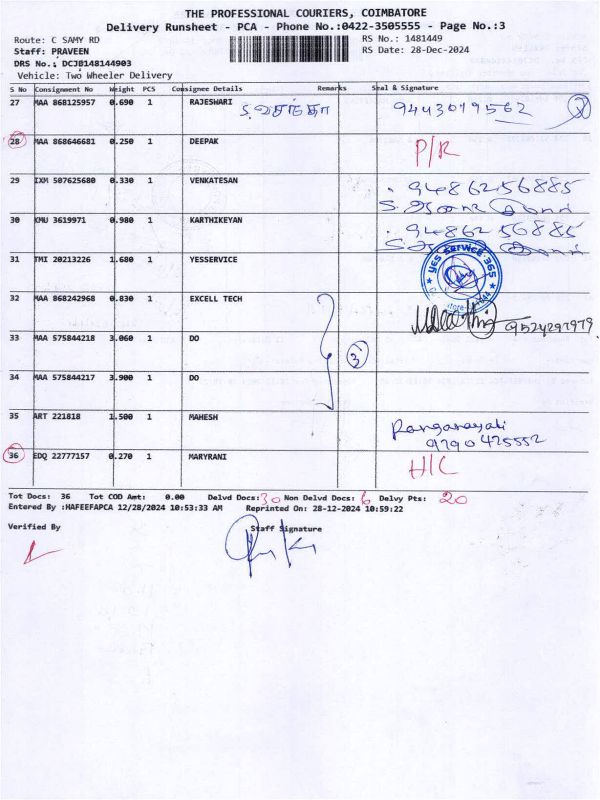 THE PROFESSIONAL COURIERS, COIMBATORE
Delivery Runsheet - PCA - Phone No.:0422-3505555 - Page No.:3
Route: C SAMY RD RS No.: 1481449
Staff: PRAVEEN RS Date: 28-Dec-2024
DRS No.: DCJB148144903
Vehicle: Two Wheeler Delivery
S No Consignment No Weight PCS Consignee Details Remarks Seal & Signature
27 MAA 868125957 0.690 1 RAJESWARI S.வசந்தா 9443019562 2
28 MAA 868646681 0.250 1 DEEPAK P/R
29 IXM 507625680 0.330 1 VENKATESAN 9486256885
30 KMU 3619971 0.980 1 KARTHIKEYAN 9486256885
31 TMI 20213226 1.680 1 YESSERVICE YES Service 365
32 MAA 868242968 0.830 1 EXCELL TECH 9524297979
33 MAA 575844218 3.060 1 DO 3
34 MAA 575844217 3.900 1 DO
35 ART 221818 1.500 1 MAHESH Ranganayaki
9790425552
36 EDQ 22777157 0.270 1 MARYRANI H/C
Tot Docs: 36 Tot COD Amt: 0.00 Delvd Docs: 30 Non Delvd Docs: 6 Delvy Pts: 20
Entered By :HAFEEFAPCA 12/28/2024 10:53:33 AM Reprinted On: 28-12-2024 10:59:22
Verified By Staff Signature